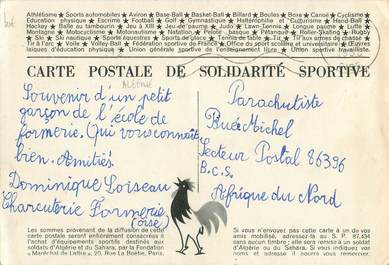 Athlétisme ★ Sports automobiles ★ Aviron ★ Base-Ball ★ Basket-Ball ★ Billard ★ Boules ★ Boxe ★ Canoë ★ Cyclisme ★
Équitation ★ Escrime ★ Football ★ Golf ★ Gymnastique ★ Haltérophilie et Culturisme ★ Hand-Ball ★
Hockey ★ Balle au tambourin ★ Jeu à XIII ★ Jeu de paume ★ Judo ★ Lawn-Tennis ★ Longue paume ★ Lutte ★
Montagne ★ Motocyclisme ★ Motonautisme ★ Natation ★ Pelote basque ★ Pétanque ★ Roller-Skating ★ Rugby
★ Ski ★ Ski nautique ★ Sports équestres ★ Sports de glace ★ Tennis de table ★ Tir ★ Tir aux armes de chasse ★
Tir à l'arc ★ Voile ★ Volley-Ball ★ Fédération sportive de France ★ Office du sport scolaire et universitaire ★ Œuvres
laïques d'éducation physique ★ Union générale sportive de l'enseignement libre ★ Union sportive travailliste
CARTE POSTALE DE SOLIDARITÉ SPORTIVE
Souvenir d'un petit
garçon de l'école de
formerie. Qui vous connait
bien. Amitiés.
Dominique Loiseau
Charcuterie Formerie
(oise)
Parachutiste
Buée Michel
Secteur Postal 86396
B.C.S.
Afrique du Nord
Les sommes provenant de la diffusion de cette
carte postale seront entièrement consacrées à
l'achat d'équipements sportifs destinés aux
soldats d'Algérie et du Sahara, par la Fondation
« Maréchal de Lattre », 20, Rue La Boétie, Paris.
Si vous n'envoyez pas cette carte à un de vos
amis mobilisé, adressez-la au S. P. 87.434
sans aucun timbre ; elle sera remise à un soldat
d'Algérie ou du Sahara. Si vous indiquez votre
nom et adresse il pourra vous remercier.